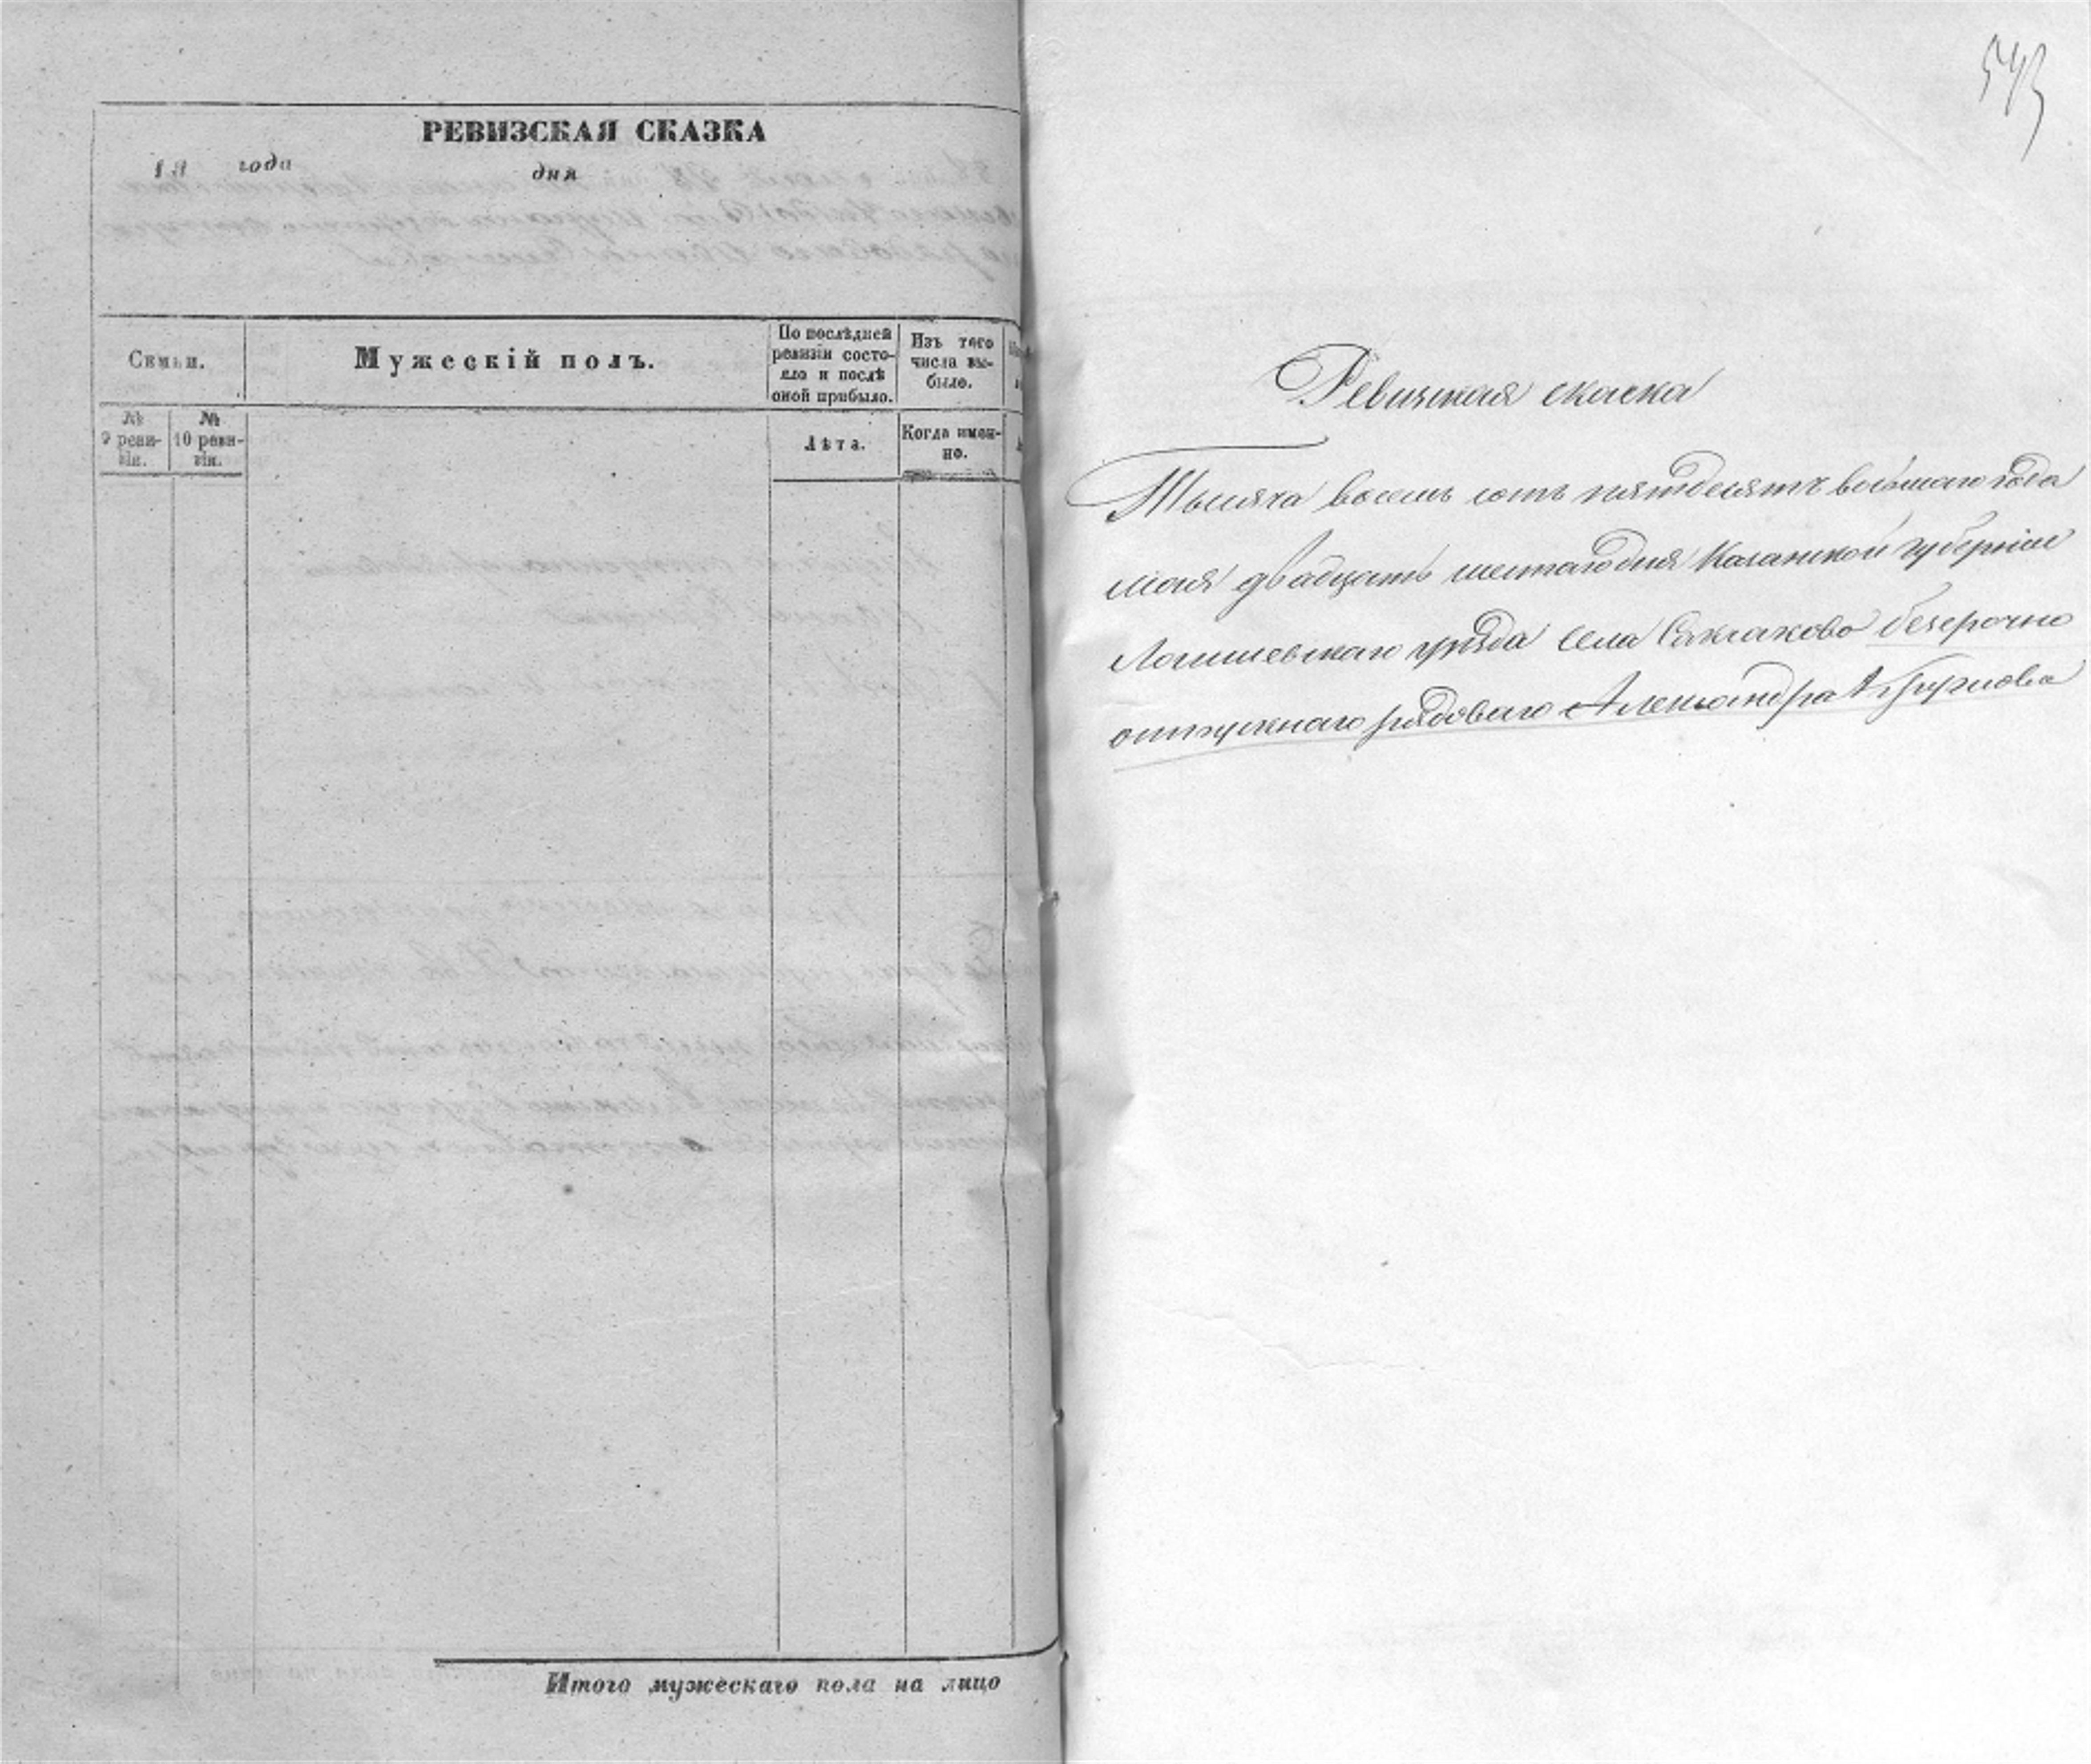 РЕВИЗСКАЯ СКАЗКА
18 года дня
Семьи.
Мужескій полъ.
По послѣдней ревизіи состо-
яло и послѣ
оной прибыло.
Изъ того
числа вы-
было.
№ 9 реви-
зіи.
№ 10 реви-
зіи.
Лѣта.
Когда имен-
но.
Итого мужескаго пола на лицо
543
Ревизская скаска
Тысяча восемь сотъ пятдесятъ восьмаго года
мая двадцать шестаго дня Казанской губерніи
Лаишевскаго уѣзда села безсрочно
отпускнаго рядоваго Александра